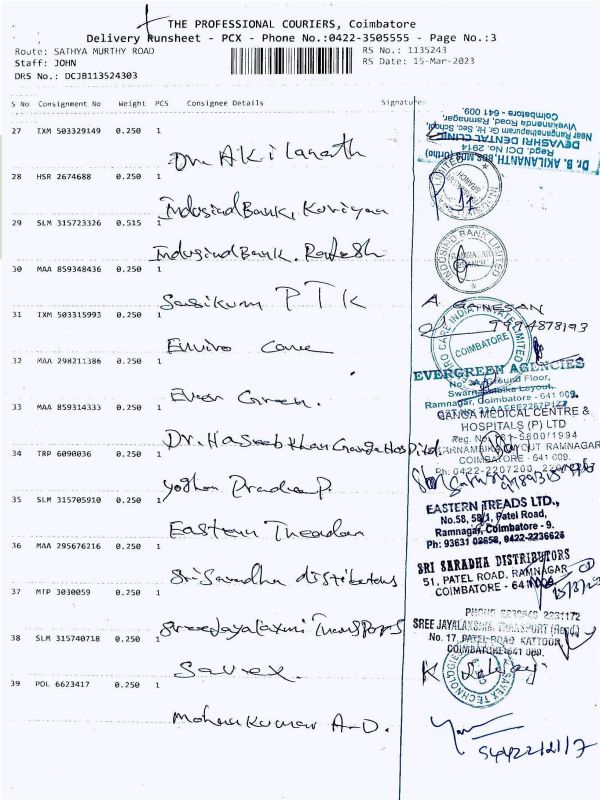 THE PROFESSIONAL COURIERS, Coimbatore
Delivery Runsheet - PCX - Phone No.:0422-3505555 - Page No.:3
Route: SATHYA MURTHY ROAD
RS No.: 1135243
Staff: JOHN
RS Date: 15-Mar-2023
DRS No.: DCJB113524303
S No Consignment No Weight PCS Consignee Details Signature
27 IXM 503329149 0.250 1
Dr. Akilanath
Dr. B. AKILANANTH BDS MDS (ortho)
Regd. DCI No. 2914
DEVASHRI DENTAL CLINIC
Near Ranganathapuram Gr. Hr. Sec. School,
Vivekananda Road, Ramnagar,
Coimbatore - 641 009.
28 HSR 2674688 0.250 1
Indusind Bank,
29 SLM 315723326 0.515 1
Indusind Bank.
INDUSIND BANK LIMITED
30 MAA 859348436 0.250 1
Sasikum PTK
A. GANESAN
9994878193
31 IXM 503315993 0.250 1
Enviro Care
ENVIRO CARE INDIA PRIVATE LIMITED
COIMBATORE
32 MAA 298211386 0.250 1
Ever Green.
EVERGREEN AGENCIES
Ground Floor,
Layout,
Ramnagar, Coimbatore - 641 009.
33 MAA 859314333 0.250 1
Dr. Haseeb Khan Ganga Hospital
GANGA MEDICAL CENTRE &
HOSPITALS (P) LTD
LAYOUT RAMNAGAR
COIMBATORE - 641 009.
Ph: 0422-2207200,
34 TRP 6090036 0.250 1
Yoghan Pradeep P.
35 SLM 315705910 0.250 1
Eastern
EASTERN TREADS LTD.,
No.58, 58/1, Patel Road,
Ramnagar, Coimbatore - 9.
Ph: 93631 08658, 0422-2236626
36 MAA 295676216 0.250 1
Sri Saradha distributors
SRI SARADHA DISTRIBUTORS
51, PATEL ROAD, RAMNAGAR
COIMBATORE - 641 009
37 MTP 3030059 0.250 1
Sreejayalaxmi Transports
SREE JAYALAKSHMI TRANSPORT (Regd)
No. 17, PATEL ROAD KATTOOR
COIMBATORE-641 009.
38 SLM 315740718 0.250 1
Savex.
TECHNOLOGIES
39 POL 6623417 0.250 1
Mohan Kumar A.D.